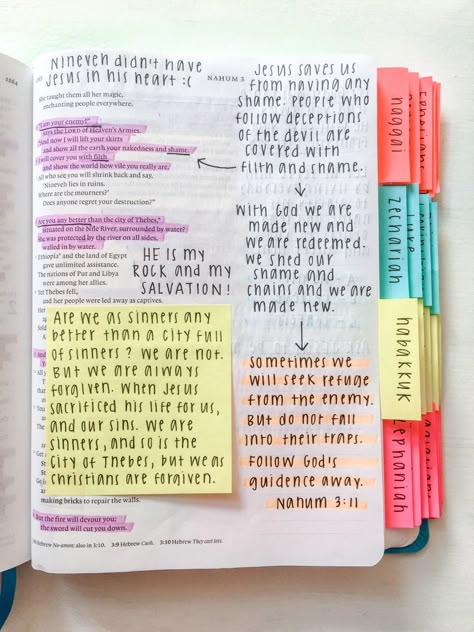 Nineveh didn't have
Jesus in his heart :(
NAHUM 3
She taught them all her magic,
enchanting people everywhere.
am your enemy!"
says the LORD of Heaven's Armies.
And now I will lift your skirts
and show all the earth your nakedness and shame.
I will cover you with filth
and show the world how vile you really are.
All who see you will shrink back and say,
'Nineveh lies in ruins.
Where are the mourners?'
Does anyone regret your destruction?"
Are you any better than the city of Thebes,
situated on the Nile River, surrounded by water?
She was protected by the river on all sides,
walled in by water.
Ethiopia and the land of Egypt
gave unlimited assistance.
The nations of Put and Libya
were among her allies.
Yet Thebes fell,
and her people were led away as captives.
He is my
rock and my
salvation!
Are we as sinners any
better than a city full
of sinners? We are not.
But we are always
forgiven. When Jesus
sacrificed his life for us,
and our sins. We are
sinners, and so is the
city of Thebes, but we as
Christians are forgiven.
making bricks to repair the walls.
But the fire will devour you;
the sword will cut you down.
Hebrew No-amon; also in 3:10. 3:9 Hebrew Cush. 3:10 Hebrew They cast lots.
Jesus saves us
from having any
shame. People who
follow deceptions
of the devil are
covered with
filth and shame.
With God we are
made new and
we are redeemed.
We shed our
shame and
chains and we are
made new.
Sometimes we
will seek refuge
from the enemy.
But do not fall
into their traps.
Follow God's
guidence away.
Nahum 3:11
haggai
zechariah
Luke
habakkuk
zephaniah